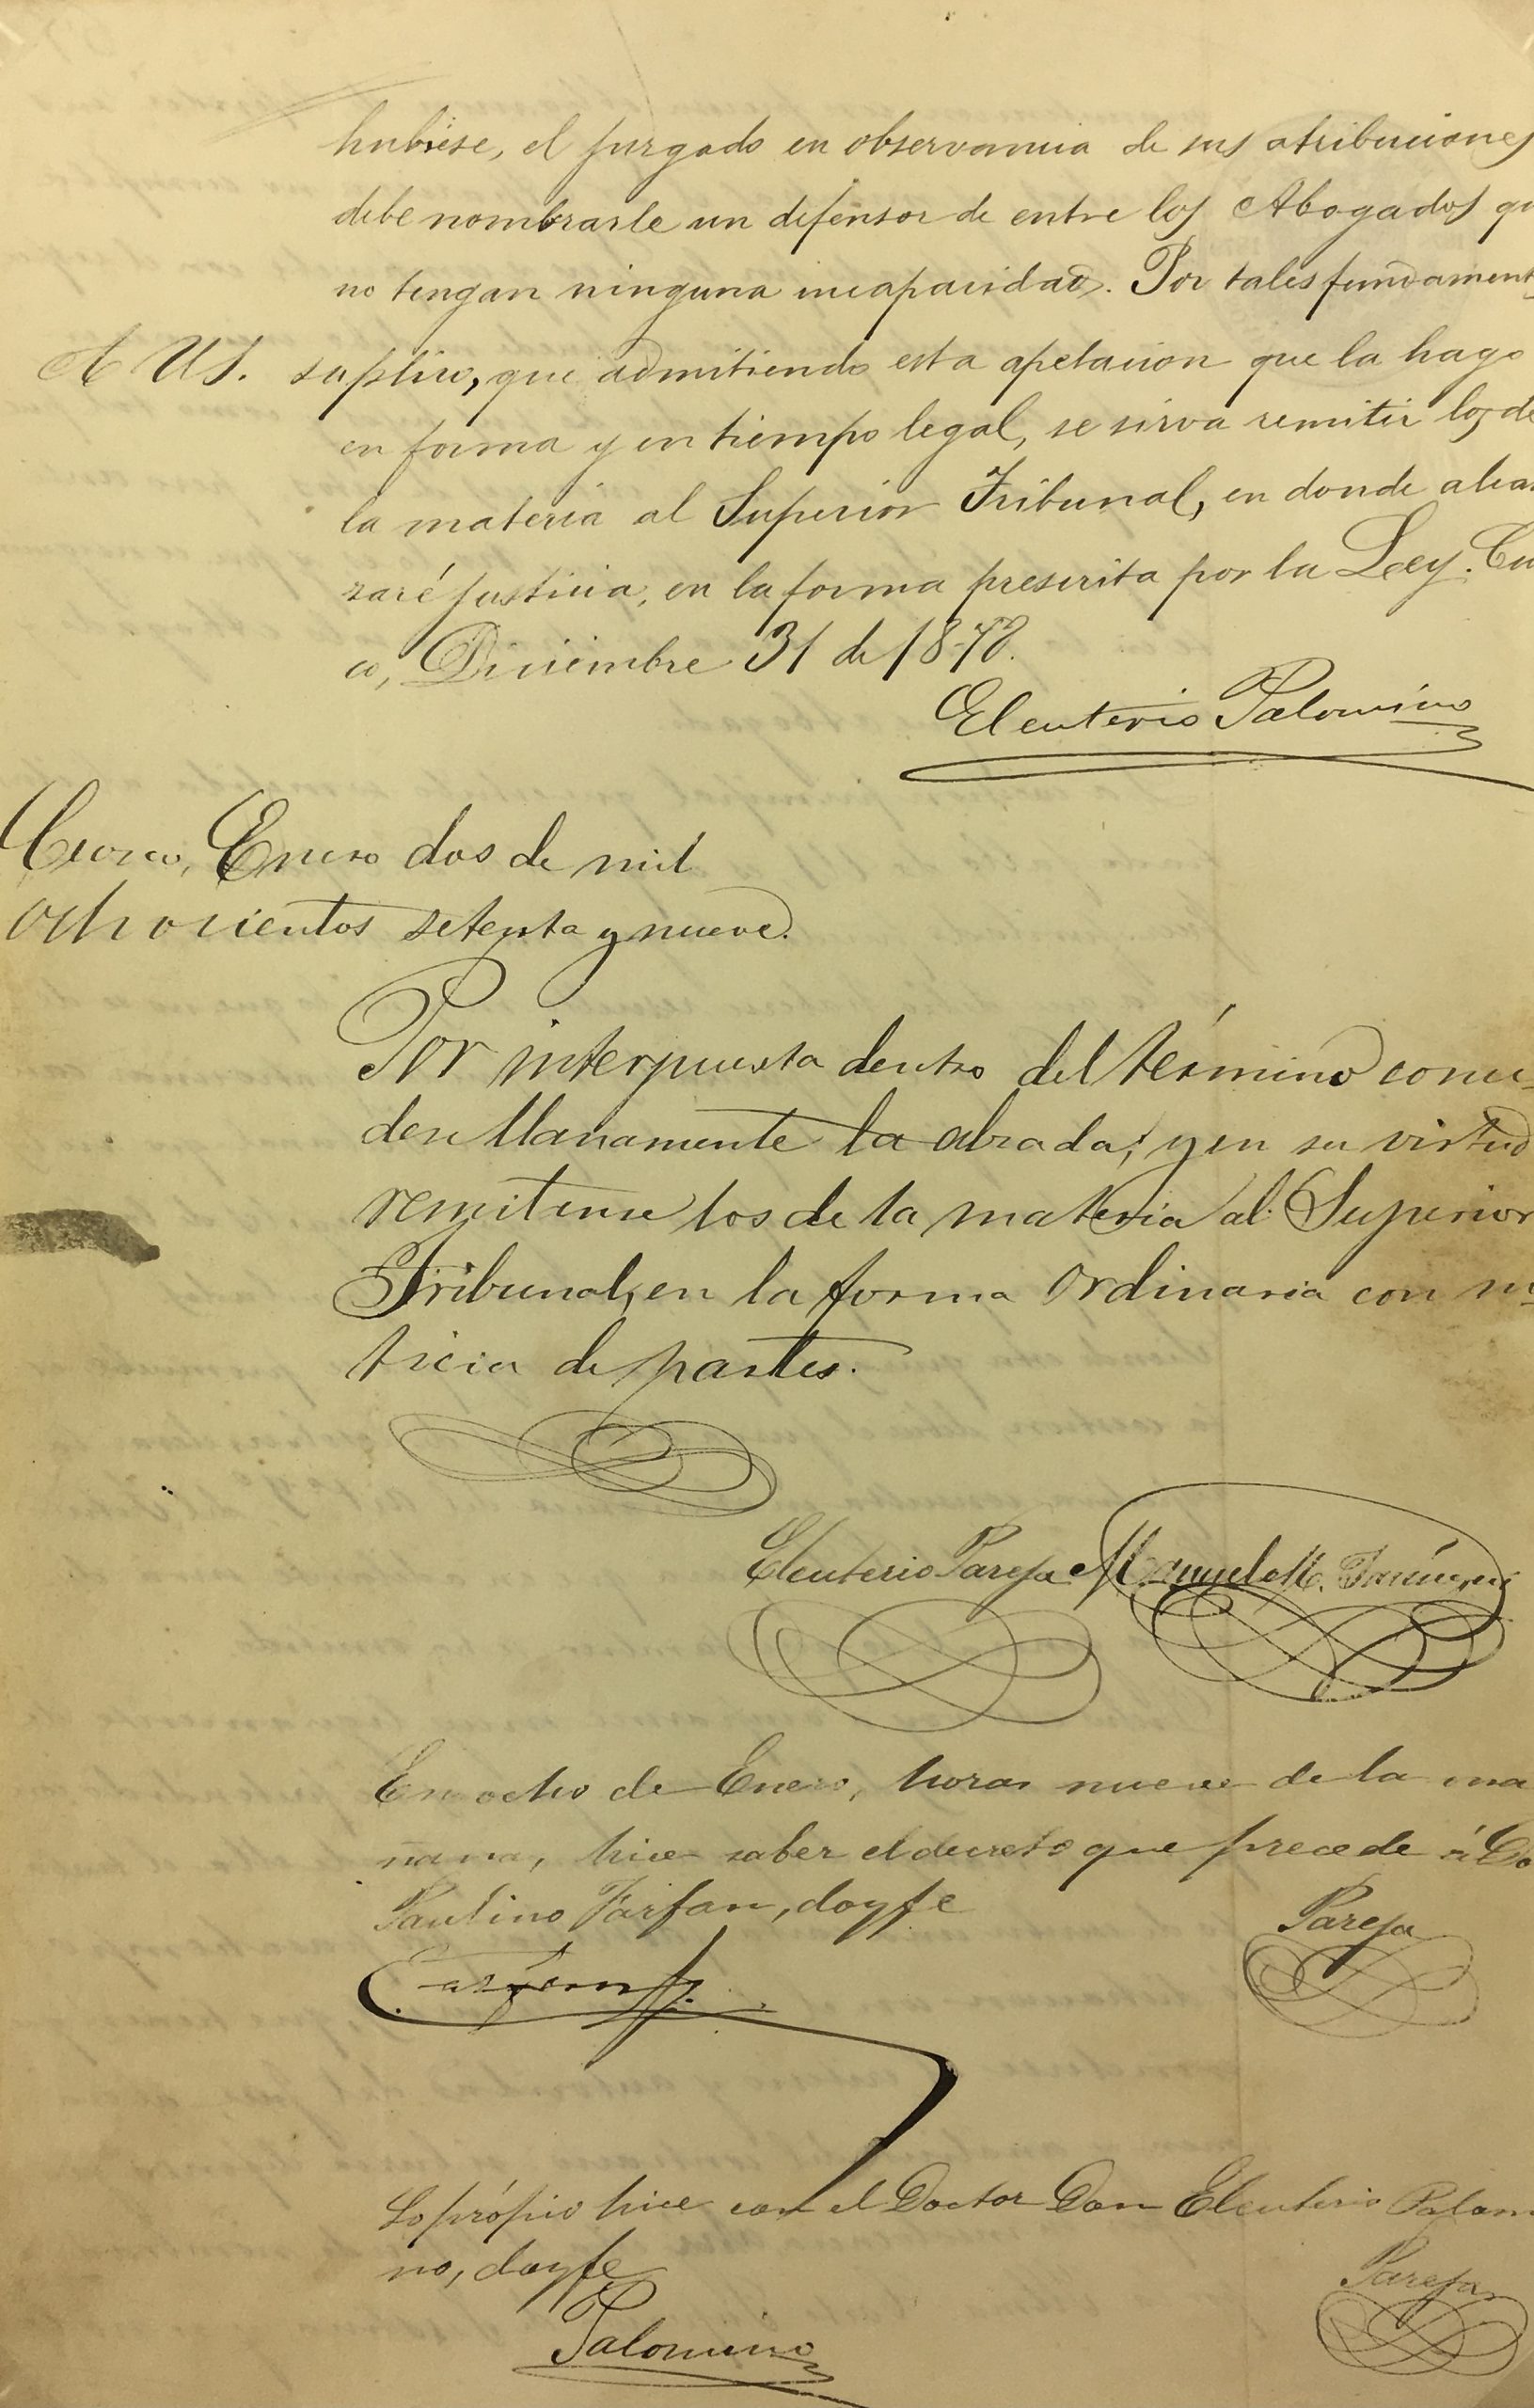 hubiese, el jurgado en observancia de sus atribuciones
debe nombrarle un defensor de entre los Abogados qu
no tengan ninguna incapacidad. Por tales fundament
A US. suplico, que admitiendo esta apelacion que la hago
en forma y en tiempo legal, se sirva remitir los de
la materia al Superior Tribunal, en donde alcan
zaré justicia, en la forma prescrita por la Ley. Cuz
co, Diciembre 31 de 1878.
Eleuterio Palomino
Cuzco, Enero dos de mil
ochocientos setenta y nueve.
Por interpuesta dentro del término conce-
dese llanamente la alzada; y en su virtud
remitanse los de la materia al Superior
Tribunal, en la forma ordinaria con no-
ticia de partes.
Eleuterio Pareja Manuel M.
En ocho de Enero, horas nueve de la ma
ñana, hice saber el decreto que precede á Do
Paulino Farfan, doy fe
Pareja
Farfan
Lo própio hice con el Doctor Don Eleuterio Palomi
no, doy fe
Pareja
Palomino